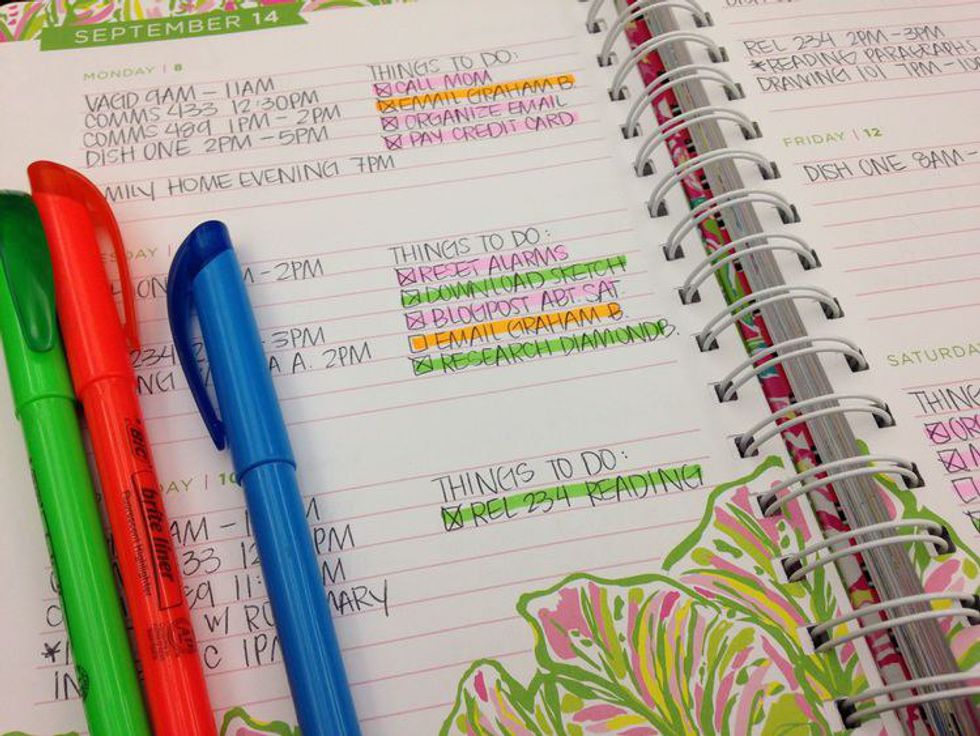 SEPTEMBER 14
MONDAY | 8
VAGD 9AM - 11AM
COMMS 433 12:30PM
COMMS 489 1PM - 2PM
DISH ONE 2PM - 5PM
MILY HOME EVENING 7PM
THINGS TO DO:
CALL MOM
EMAIL GRAHAM B.
ORGANIZE EMAIL
PAY CREDIT CARD
ESDAY |
ON - 2PM
- 3PM
234
NG A A. 2PM
THINGS TO DO:
RESET ALARMS
DOWNLOAD SKETCH
BLOGPOST ABT. SAT.
EMAIL GRAHAM B.
RESEARCH DIAMONDB.
DAY | 10
AM - 1 M
33 12 PM
89 11: M
W/ RO MARY
C 1PM
IN
THINGS TO DO:
REL 234 READING
BIC
brite liner
Fluorescent Highlighter
REL 234 2PM - 3PM
*READING PARAGRAPH
DRAWING 101 7PM - 10P
FRIDAY | 12
DISH ONE 8AM -
SATURDA
THING